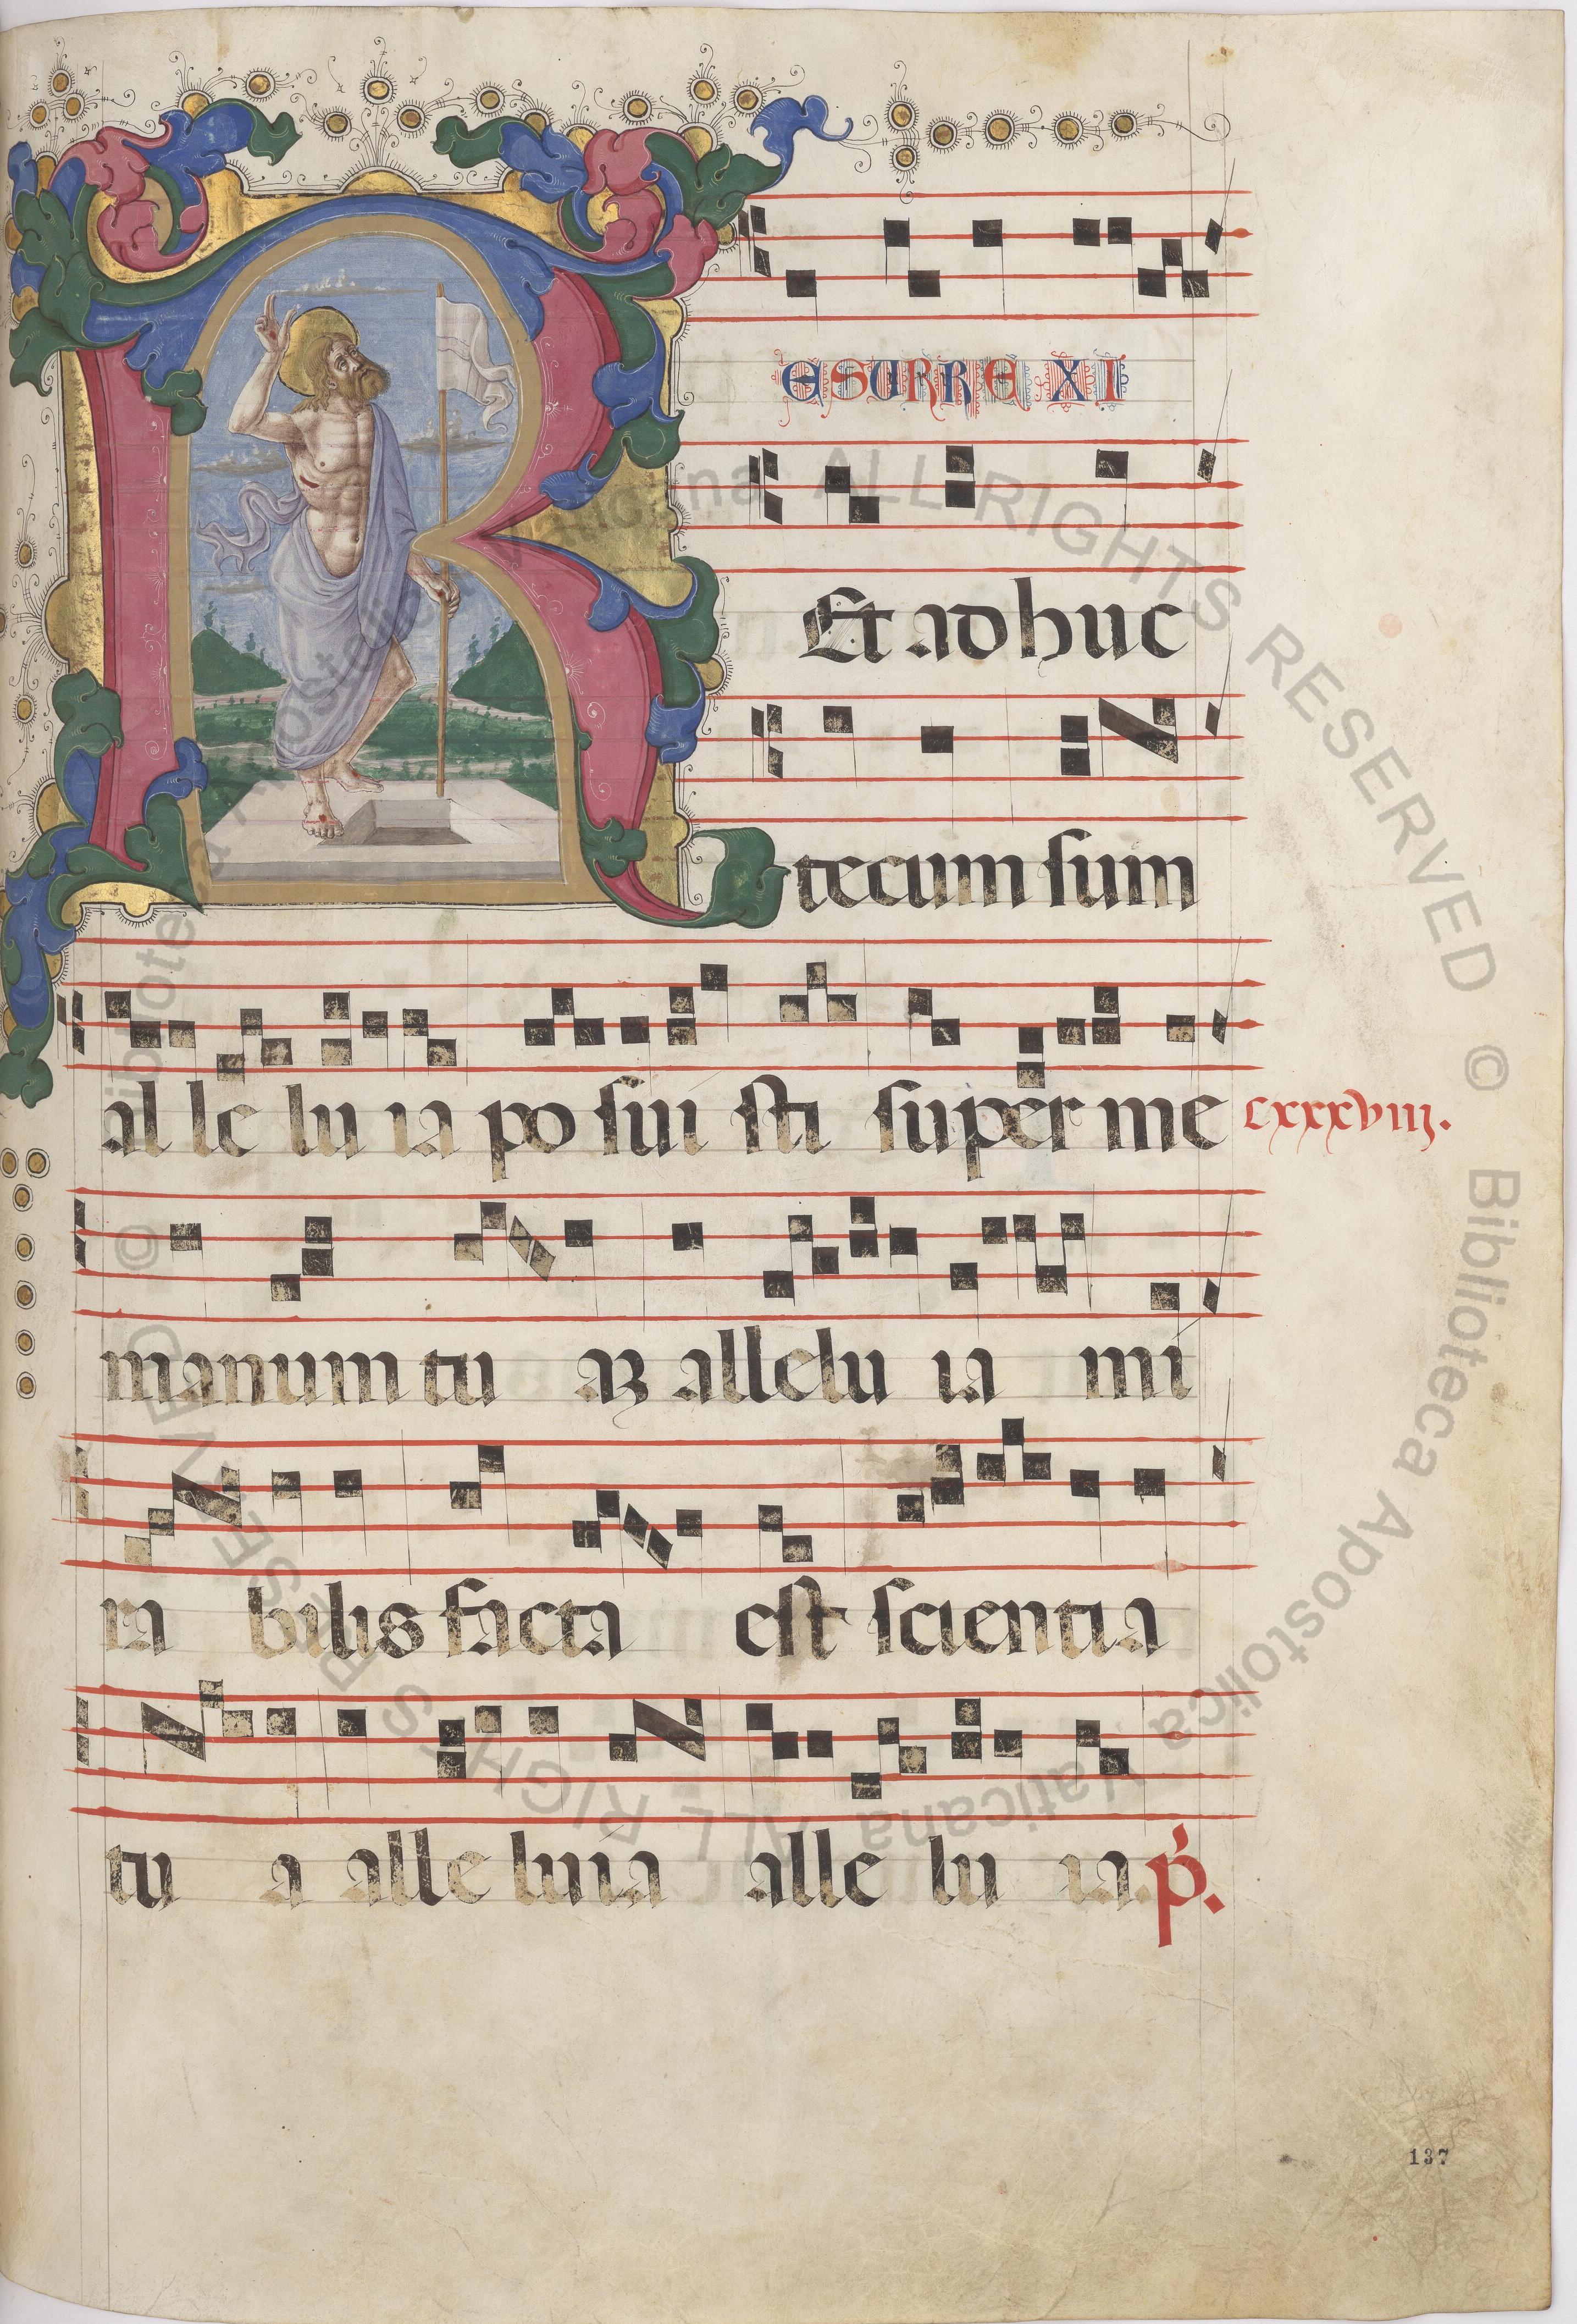 R ESURREXI
Et adhuc
tecum sum
al le lu ia po sui sti super me
cxxxviij.
manum tu aꝫ allelu ia mi
ra bilis facta est scientia
tu a alle luia alle lu ia. p̄.
137
© Biblioteca Apostolica Vaticana ALL RIGHTS RESERVED © Biblioteca Apostolica Vaticana ALL RIGHTS RESERVED